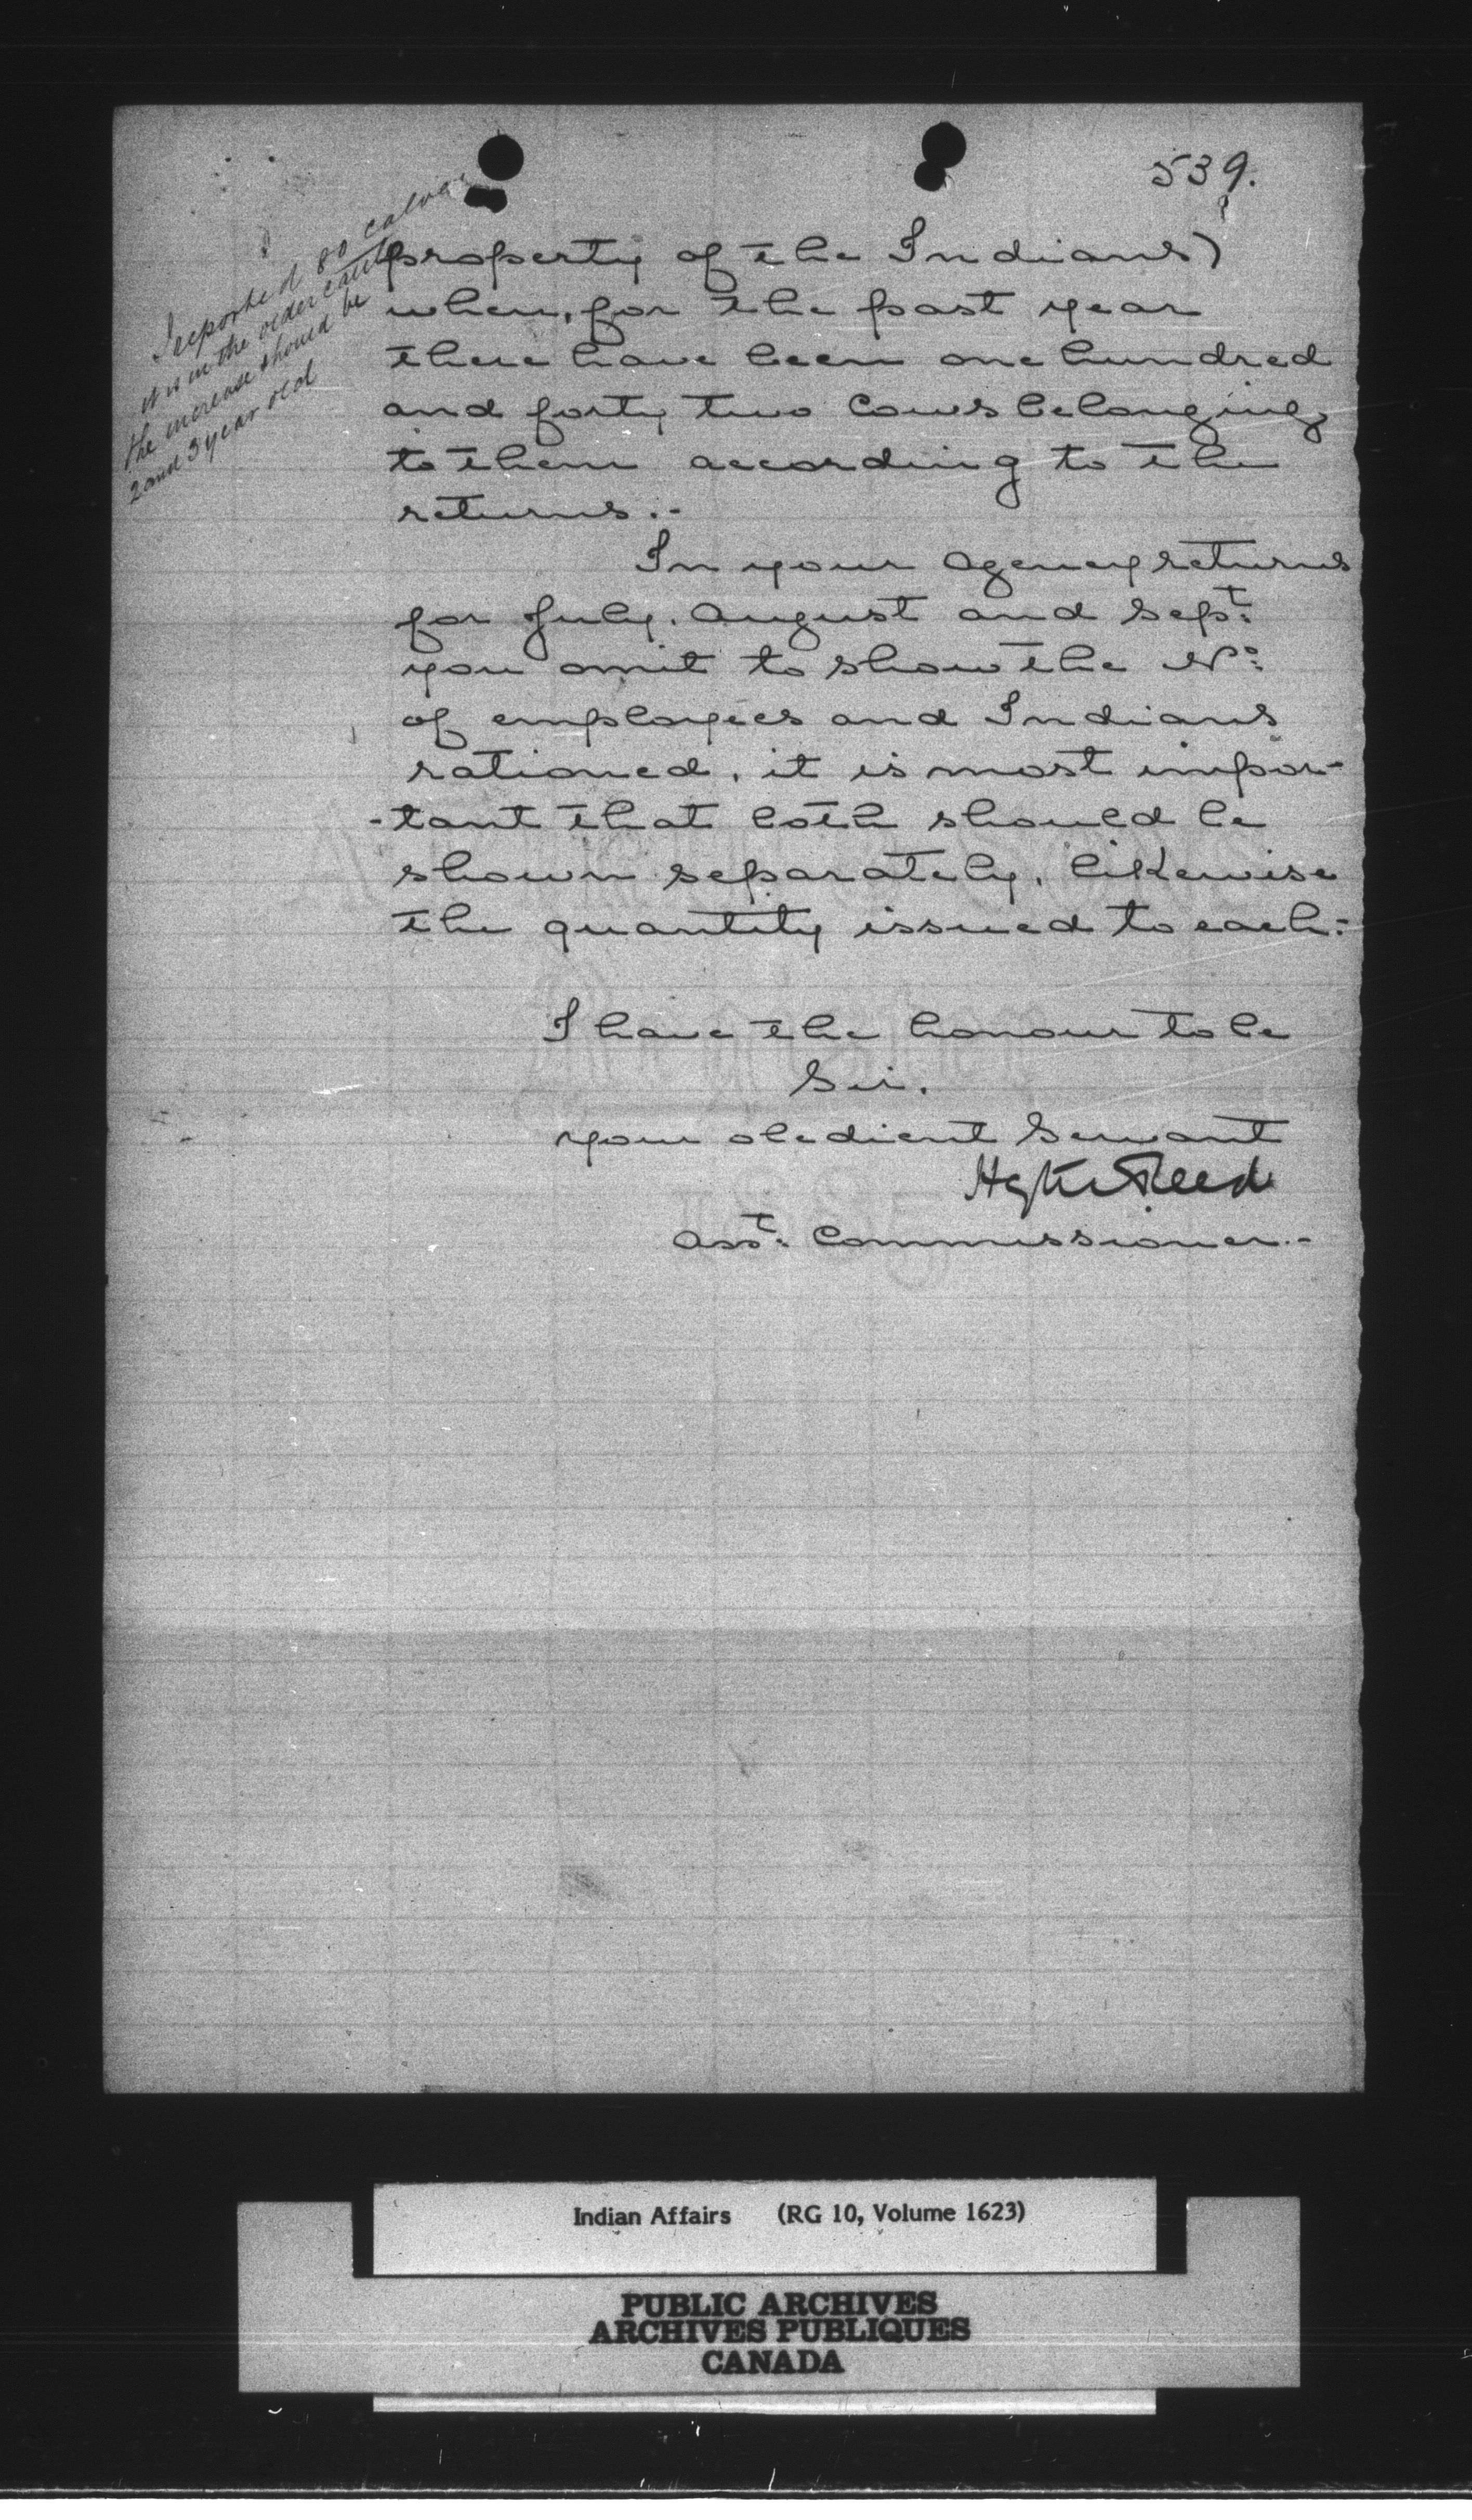 539.
I reported 80 calves
it is in the older cattle
the increase should be
2 and 3 year old
property of the Indians)
when, for the past year
there have been one hundred
and forty two Cows belonging
to them according to the
returns.-
In your Agency returns
for July, August and Sept:
you omit to show the No:
of employees and Indians
rationed, it is most impor-
-tant that both should be
shown separately, likewise
the quantity issued to each:-
I have the honour to be
Sir,
your obedient Servant
Hayter Reed
Asst: Commissioner.-
Indian Affairs (RG 10, Volume 1623)
PUBLIC ARCHIVES
ARCHIVES PUBLIQUES
CANADA